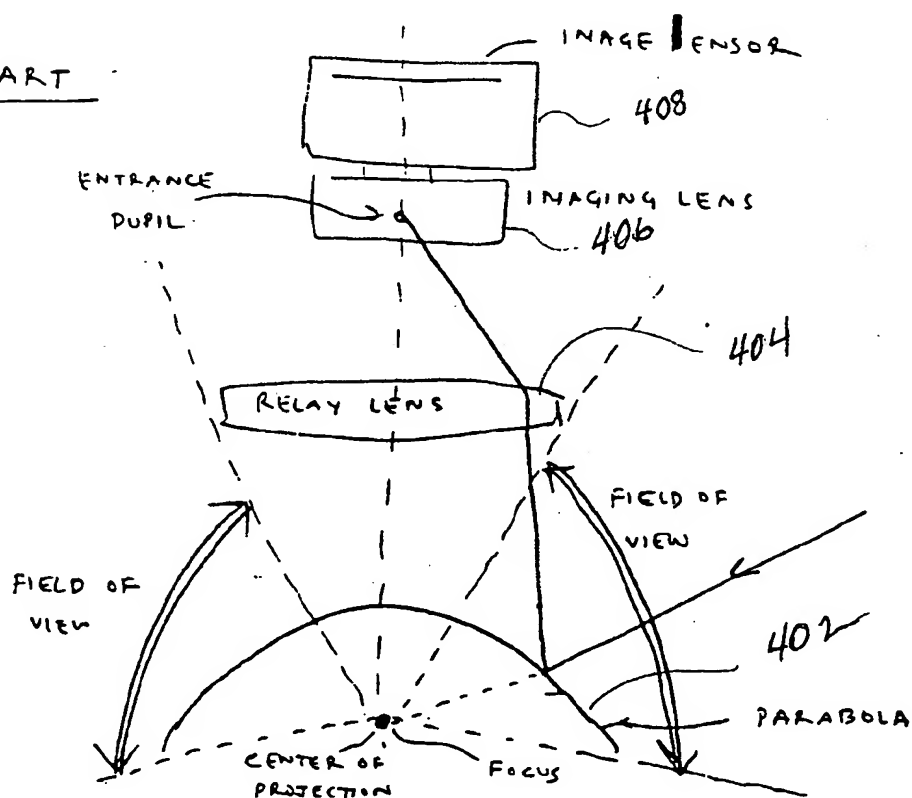 ART
IMAGE SENSOR
408
ENTRANCE
PUPIL
IMAGING LENS
406
404
RELAY LENS
FIELD OF
VIEW
FIELD OF
VIEW
402
PARABOLA
CENTER OF
PROJECTION
FOCUS